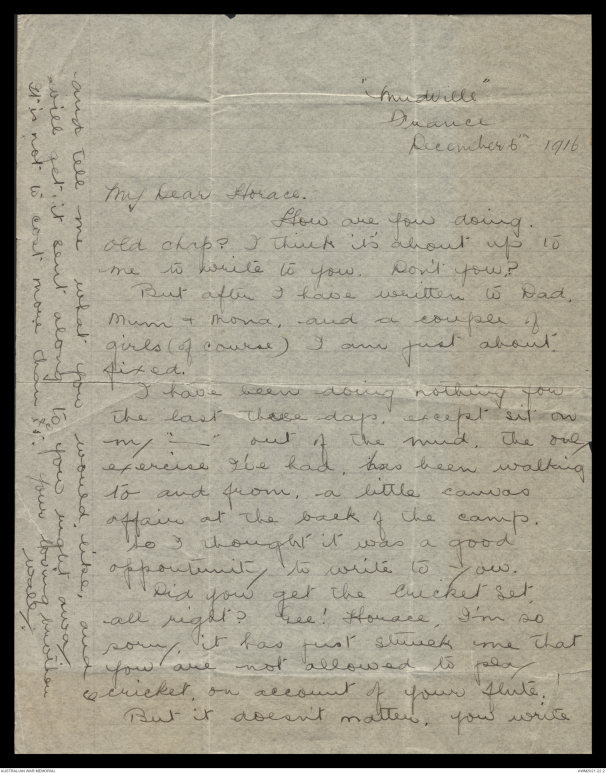 "Mudville"
France
December 6th 1916
My Dear Horace.
How are you doing.
old chap? I think it's about up to
me to write to you. Don't you?
But after I have written to Dad,
Mum + Mona, and a couple of
girls (of course) I am just about
fixed.
I have been doing nothing for
the last three days, except sit on
my "——" out of the mud, the only
exercise I've had, has been walking
to and from, a little canvas
affair at the back of the camp.
So I thought it was a good
opportunity to write to you.
Did you get the Cricket set
all right? Gee! Horace, I'm so
sorry, it has just struck me that
you are not allowed to play
cricket, on account of your flute.
But it doesn't matter, you write
and tell me what you would like, and
will get it sent along to you right away
It is not to cost more than
Your loving brother
Wally.
AUSTRALIAN WAR MEMORIAL
AWM2021.22.2